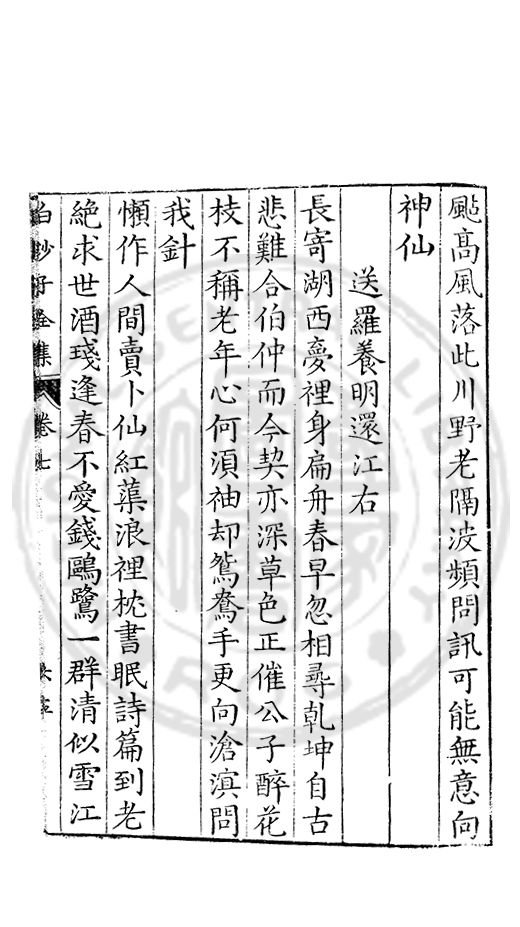 颭高風落此川野老隔波頻問訊可能無意向
神仙
送羅養明還江右
長寄湖西夣裡身扁舟春早忽相尋乹坤自古
悲難合伯仲而今契亦深草色正催公子醉花
枝不稱老年心何須袖却鴛鴦手更向滄溟問
我針
懶作人間賣卜仙紅蕖浪裡枕書眠詩篇到老
絶求世酒琖逢春不愛錢鷗鷺一群清似雪江
白沙子全集 卷七